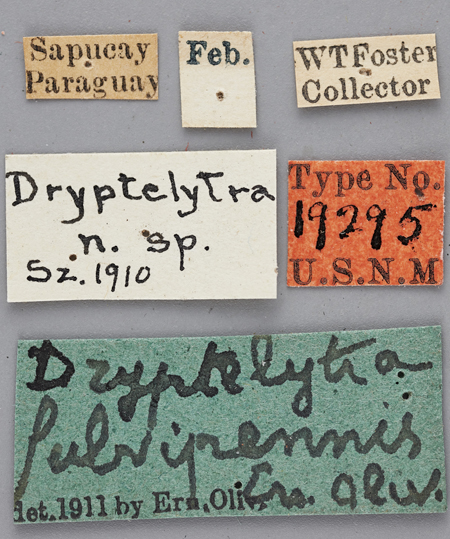 Sapucay
Paraguay
Feb.
WTFoster
Collector
DryptelyTra
n. sp.
Sz. 1910
Type No.
19295
U.S.N.M
Dryptelytra
fulvipennis
Ern. Oliv.
det.1911 by Ern.Oliv.